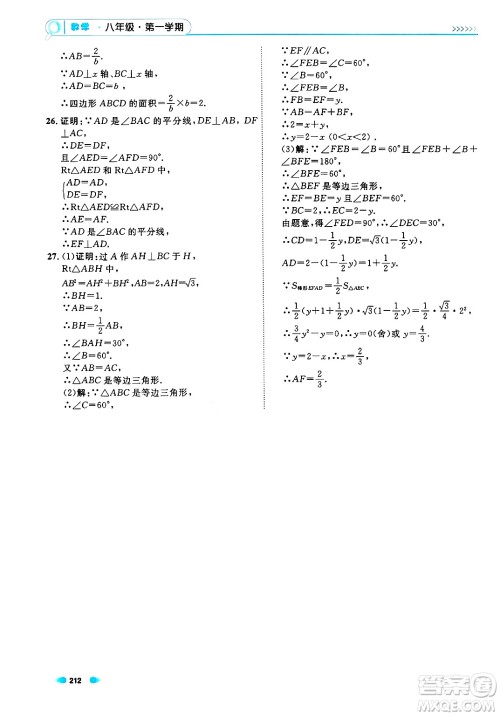 数学 · 八年级 · 第一学期
∴AB=2/b.
∵AD⊥x 轴,BC⊥x 轴,
∴AD=BC=b.
∴四边形 ABCD 的面积=2/b×b=2.
26. 证明:∵AD 是∠BAC 的平分线,DE⊥AB, DF
⊥AC,
∴DE=DF=.
且∠AED=∠AFD=90°.
Rt△AED 和 Rt△AFD 中,
{AD=AD,
DE=DF=.
∴Rt△AED≌Rt△AFD.
∴AE=AF.
∵AD 是∠BAC 的平分线,
∴EF⊥AD.
27. (1)证明:过 A 作 AH⊥BC 于 H,
Rt△ABH 中,
AB²=AH²+BH²,AH=√3,
∴BH=1.
∵AB=2,
∴BH=1/2AB,
∴∠BAH=30°.
∴∠B=60°.
又∵AB=AC,
∴△ABC 是等边三角形.
(2)解:∵△ABC 是等边三角形,
∴∠C=60°,
∵EF∥AC,
∴∠FEB=∠C=60°.
∵∠B=60°,
∴∠FEB=∠B.
∴BF=EF=y.
∵BF+AF=AB,
∴y+x=2,
∴y=2-x (0<x<2).
(3)解:∵∠FEB=∠B=60°,∠FEB+∠B+
∠BFE=180°,
∴△BEF 是等边三角形.
∴EF=BE=y.
∵BC=2,
∴EC=2-y.
由题意,得∠FED=90°,∠DEC=30°,
∴CD=1-1/2y,DE=√3(1-1/2y),
AD=2-(1-1/2y)=1+1/2y.
∵S梯形EFAD=1/2S△ABC,
∴1/2(y+1+1/2y)·√3(1-1/2y)=1/2·√3/4·2²,
∴3/4y²-y=0,∴y=0(舍)或y=4/3.
∵y=2-x,
∴x=2/3.
∴AF=2/3.
212
答案圈
MXQE.COM